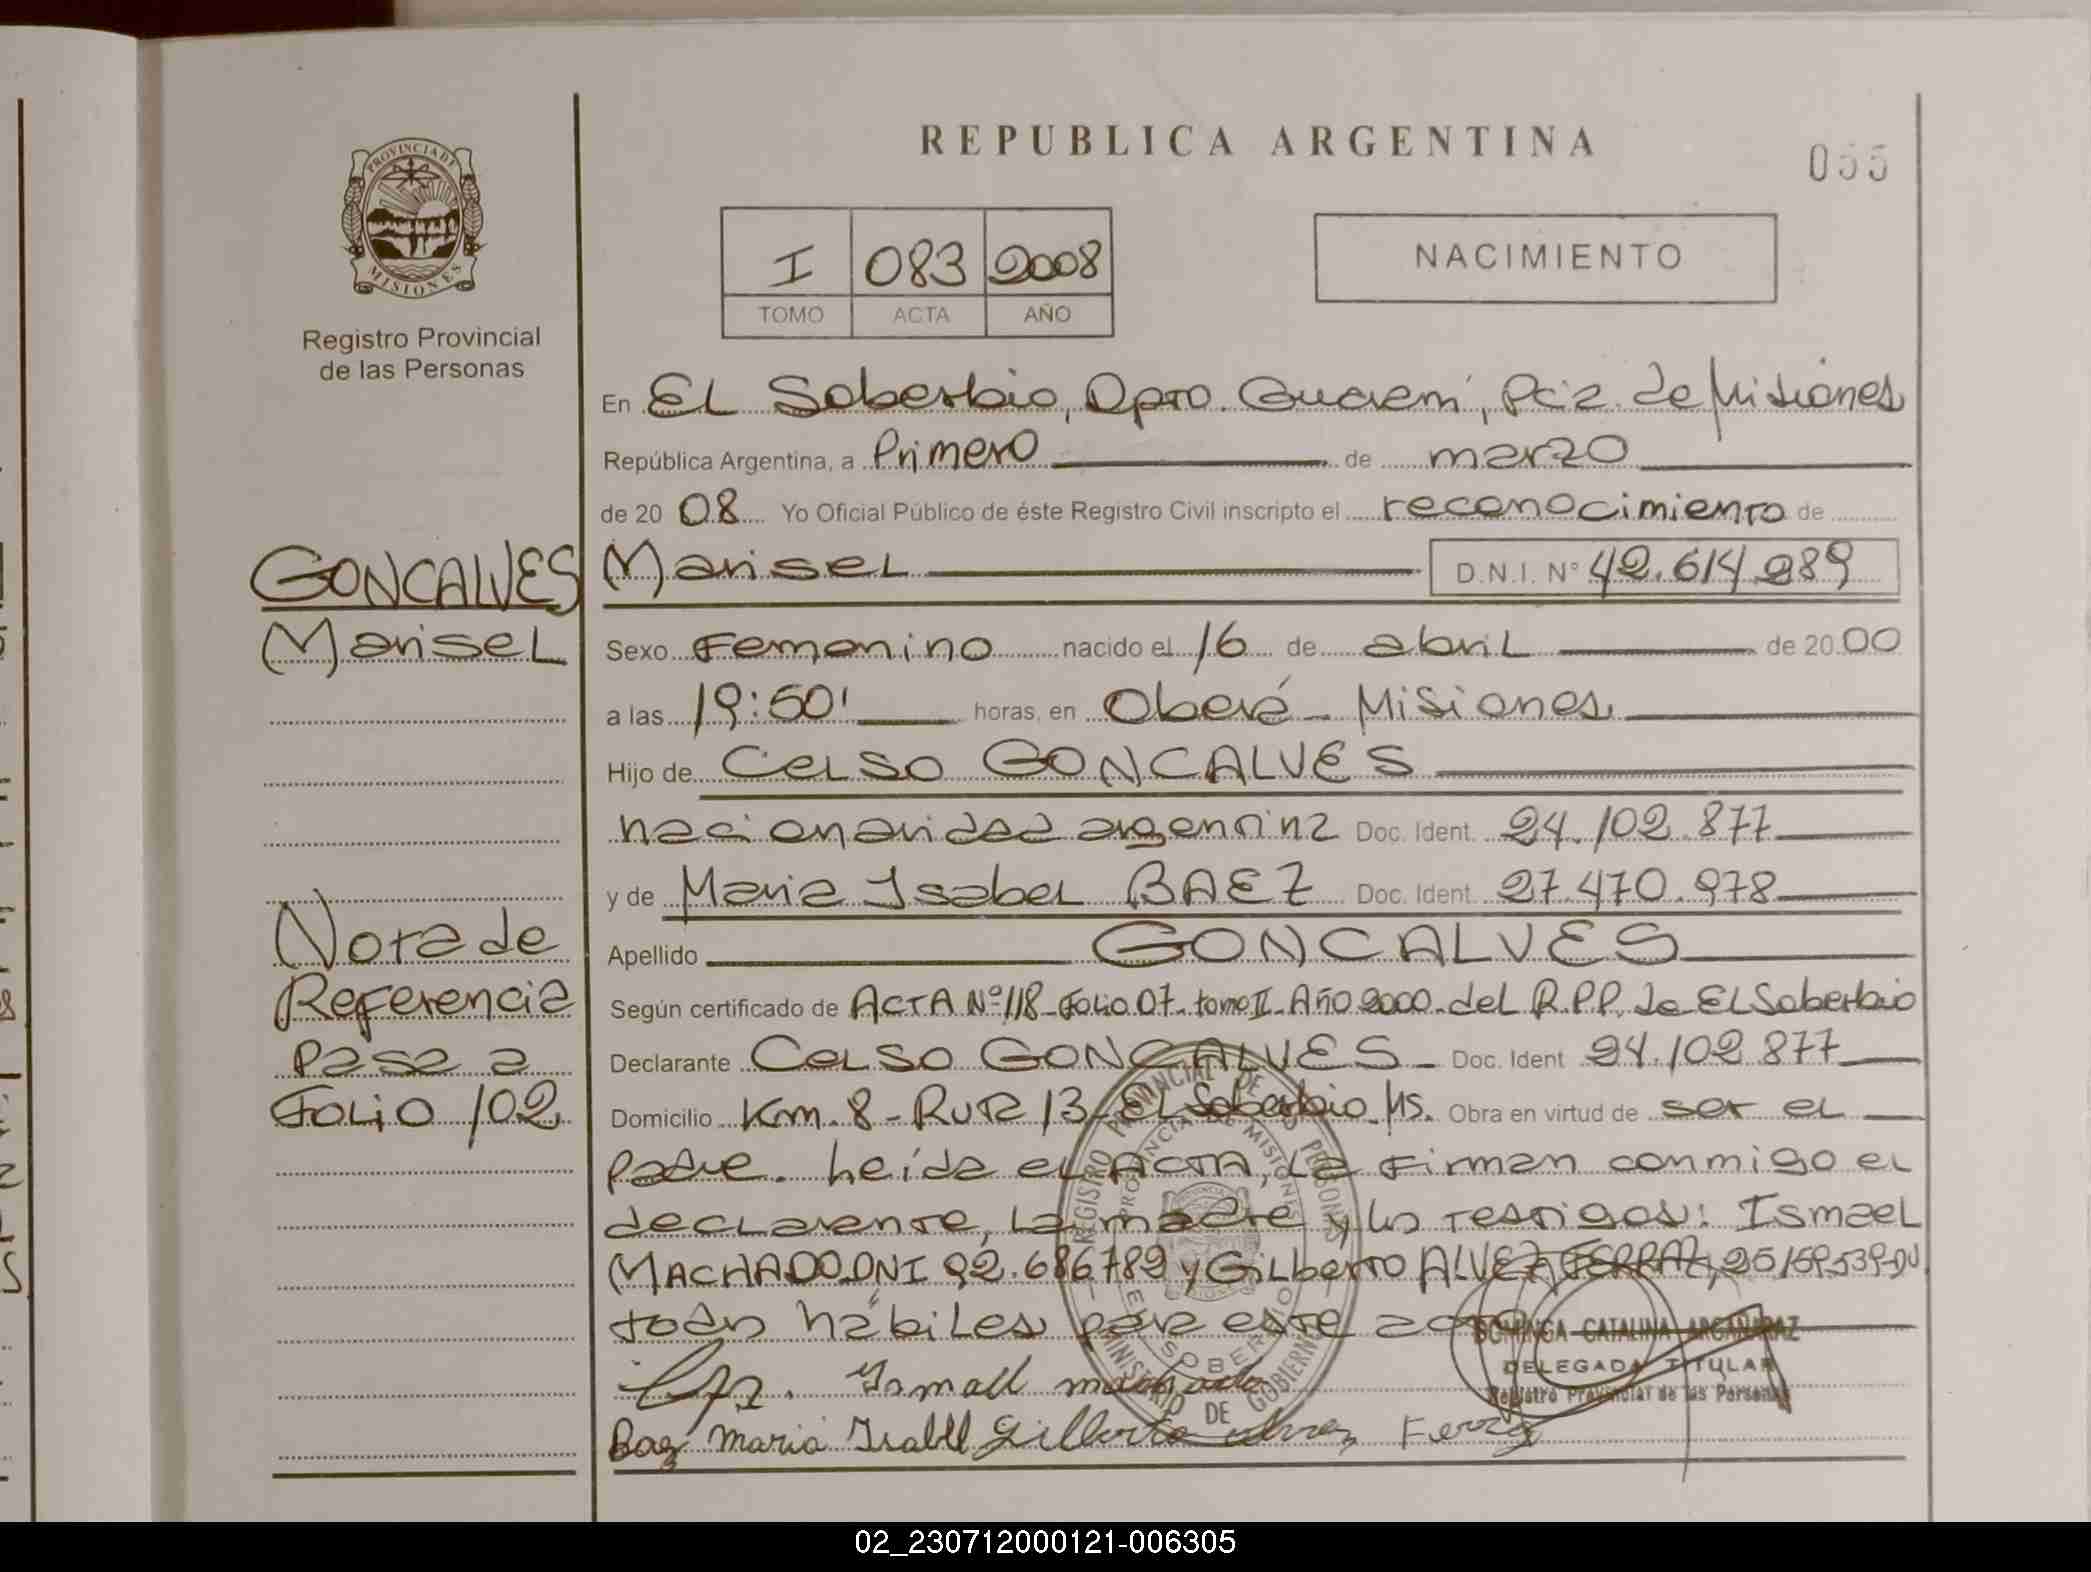 REPUBLICA ARGENTINA
055
PROVINCIA DE
MISIONES
Registro Provincial
de las Personas
I 083 2008
TOMO ACTA AÑO
NACIMIENTO
En EL Soberbio, Dpto. Guaraní, Pcia. de Misiones
República Argentina, a Primero de marzo
de 20 08 Yo Oficial Público de éste Registro Civil inscripto el reconocimiento de
GONCALVES
Marisel
Marisel D.N.I. Nº 42.614.289
Sexo Femenino nacido el 16 de abril de 20 00
a las 19:50' horas, en Oberá - Misiones
Hijo de Celso GONCALVES
nacionalidad argentina Doc. Ident. 24.102.877
y de Maria Isabel BAEZ Doc. Ident. 27.470.978
Apellido GONCALVES
Según certificado de ACTA Nº 118 - Folio 07 - tomo II - Año 2000 - del R.P.P. de EL Soberbio
Declarante Celso GONCALVES - Doc. Ident 24.102.877
Domicilio Km. 8 - Ruta 13 - EL Soberbio Ms. Obra en virtud de ser el
padre. Leída el ACTA, la firman conmigo el
declarante, la madre y los testigos: Ismael
MACHADO DNI 92.686789 y Gilberto ALVEZ FERRAZ, 25159539-DU
todos hábiles para este acto
Nota de
Referencia
Pasa a
Folio 102
Ismael machado
Baez maria Isabel Gilberto alvez Ferraz
REGISTRO PROVINCIAL DE LAS PERSONAS
PROVINCIA DE MISIONES
EL SOBERBIO
MINISTERIO DE GOBIERNO
DOMINGA CATALINA ARGAÑARAZ
DELEGADA TITULAR
Registro Provincial de las Personas
02_230712000121-006305